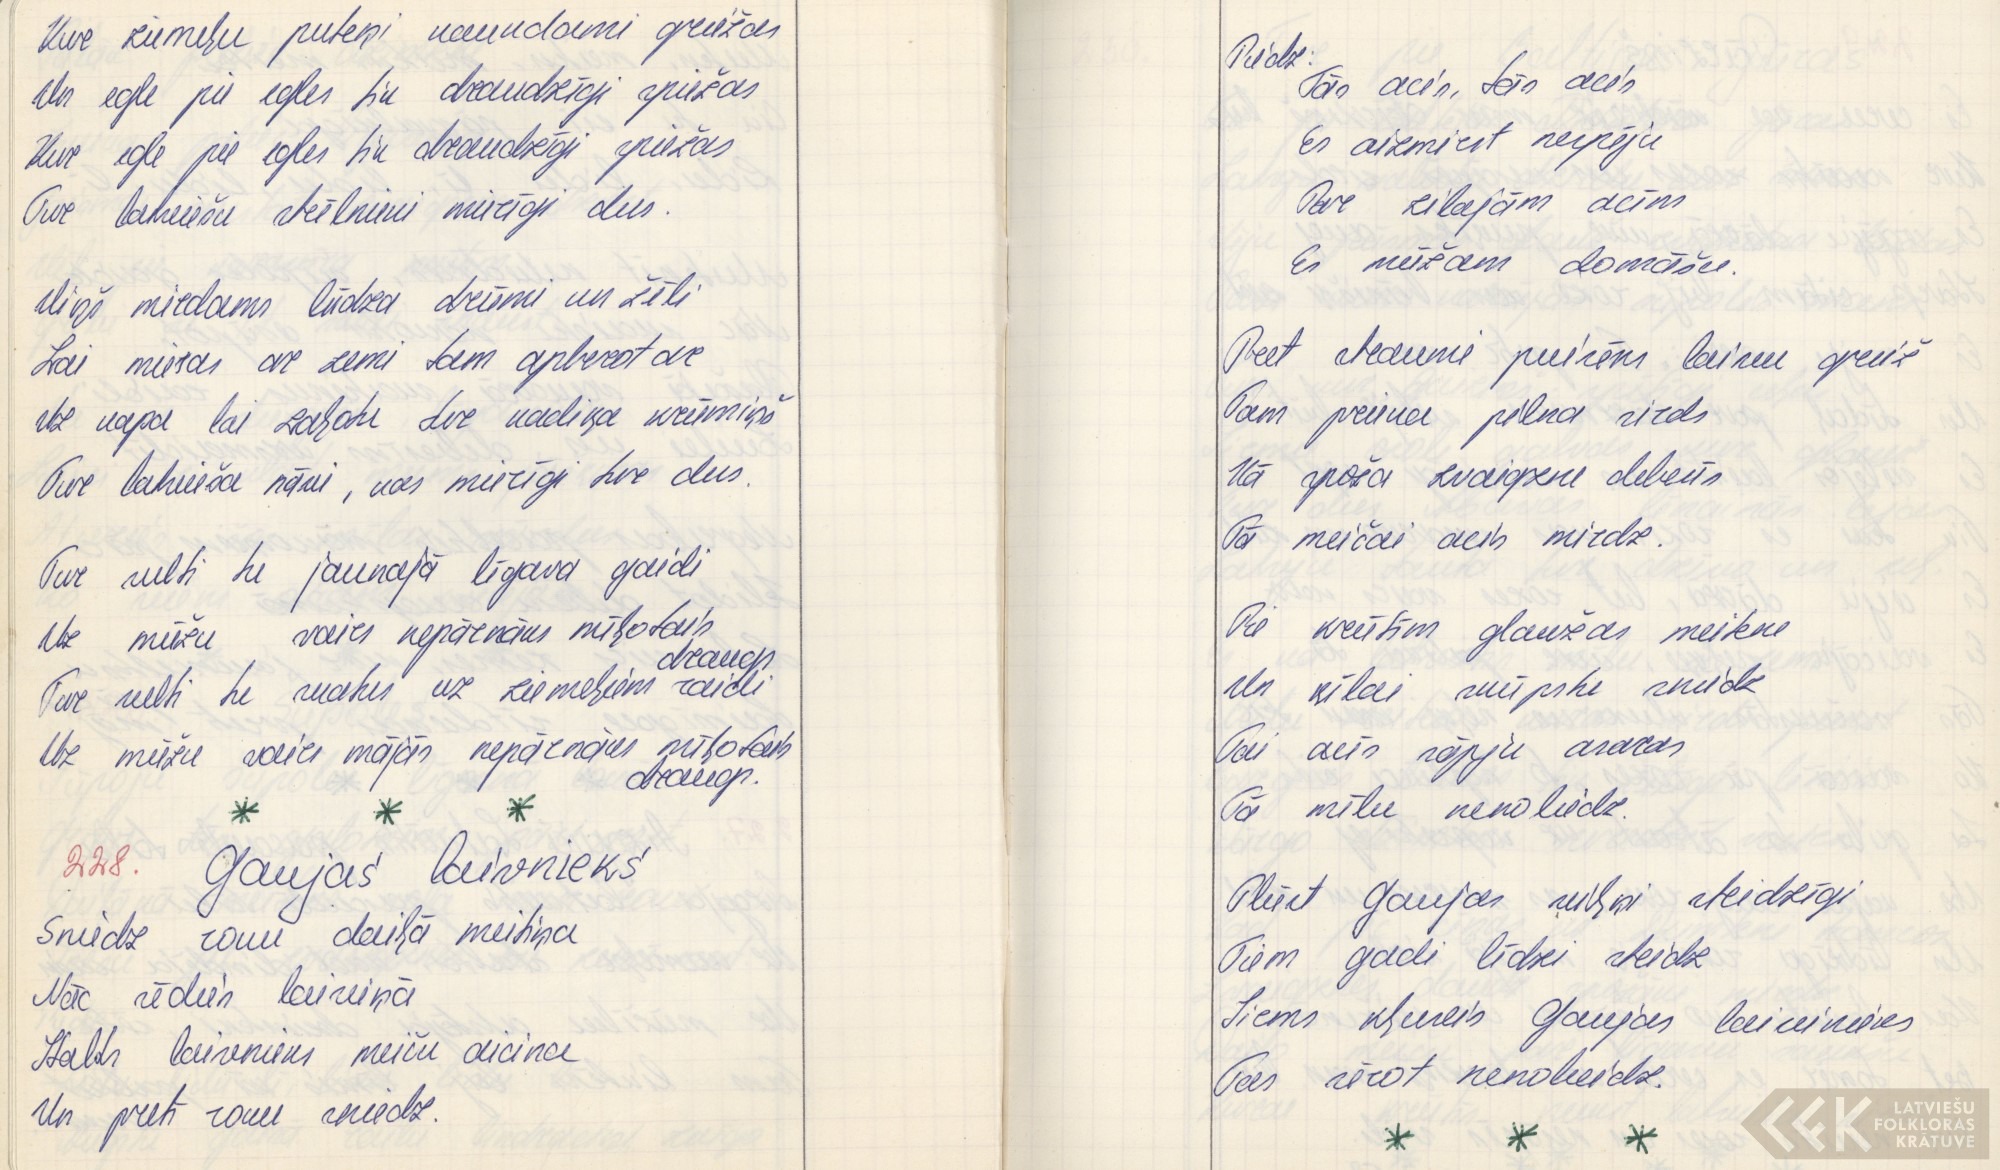 Kur ziemeļu puteņi kaukdami griežas
Un egle pie egles tik draudzīgi spiežas
Kur egle pie egles tik draudzīgi spiežas
Tur latviešu strēlnieki mierīgi dus.
Viņš mirdams lūdza drūmi un žēli
Lai miesas ar zemi tam apberot ar
Uz kapa lai zaļotu tur kadiķa krūmiņš
Tur latvieša nāvi, kas mierīgi tur dus.
Tur velti te jaunajā līgava gaidi
Uz mūžu vairs nepārnāks mīļotais
draugs
Tur velti te skatus uz ziemeļiem raidi
Uz mūžu vairs mājās nepārnāks mīļotais
draugs.
* * *
228. Gaujas laivnieks
Sniedz roku daiļā meitiņa
Nāc sēdies laiviņā
Stalts laivnieks meiču aicina
Un preti roku sniedz.
Piedz:
Tās acis, tās acis
Es aizmirst nespēju
Par zilajām acīm
Es mūžam domāšu.
Pret straumi puisēns laivu griež
Tam prieka pilna sirds
Kā spoža zvaigzne debesīs
Tā meičai acis mirdz.
Pie krūtīm glaužas meitene
Un ķīlai skūpstu sniedz
Tai acīs sāpju asaras
Tā mīlu nenoliedz.
Plūst Gaujas viļņi steidzīgi
Tiem gadi līdzi steidz
Sirms kļuvis Gaujas laivinieks
Tas sērot nenobeidz.
* * *
LATVIEŠU
FOLKLORAS
KRĀTUVE